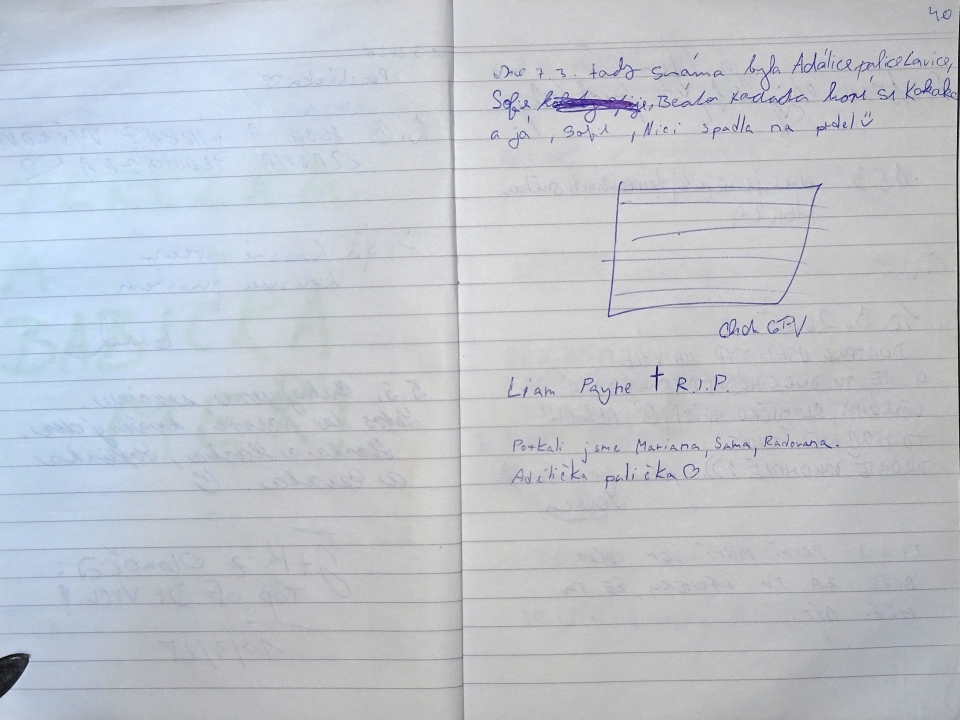 40
dne 7.3. tady snáma byla Adálice palice Lavice,
Sofie, Beáta Kadáda honí si Kakada
a já, Sofi, Nici spadla na prdel
Liam Payne † R.I.P.
Potkali jsme Mariana, Sama, Radovana.
Adélička palička ♡